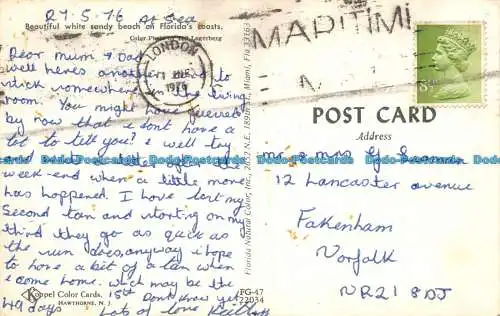 27.5.76 At Sea
Beautiful white sandy beach on Florida's coasts.
Color Photo by Ted Lagerberg
Dear Mum & Dad
well heres another card to
stick somewhere in the living
room. You might have guessed
by now that i dont have a
lot to tell you? i well try
and the
week-end when a little more
has happened. I have lost my
Second tan and starting on my
third they go as quick as
the sun does, anyway i hope
to have a bit of a tan when
i come home. which may be the
15th Dont know yet
49 days Lots of love Keith
Koppel Color Cards
HAWTHORNE, N. J.
FG-47
22034
Florida Natural Color, Inc., Miami, Fla. 33161
LONDON
1976
MARITIM
POST CARD
Address
Mr & Mrs G
12 Lancaster avenue
Fakenham
Norfolk
NR21 8DJ